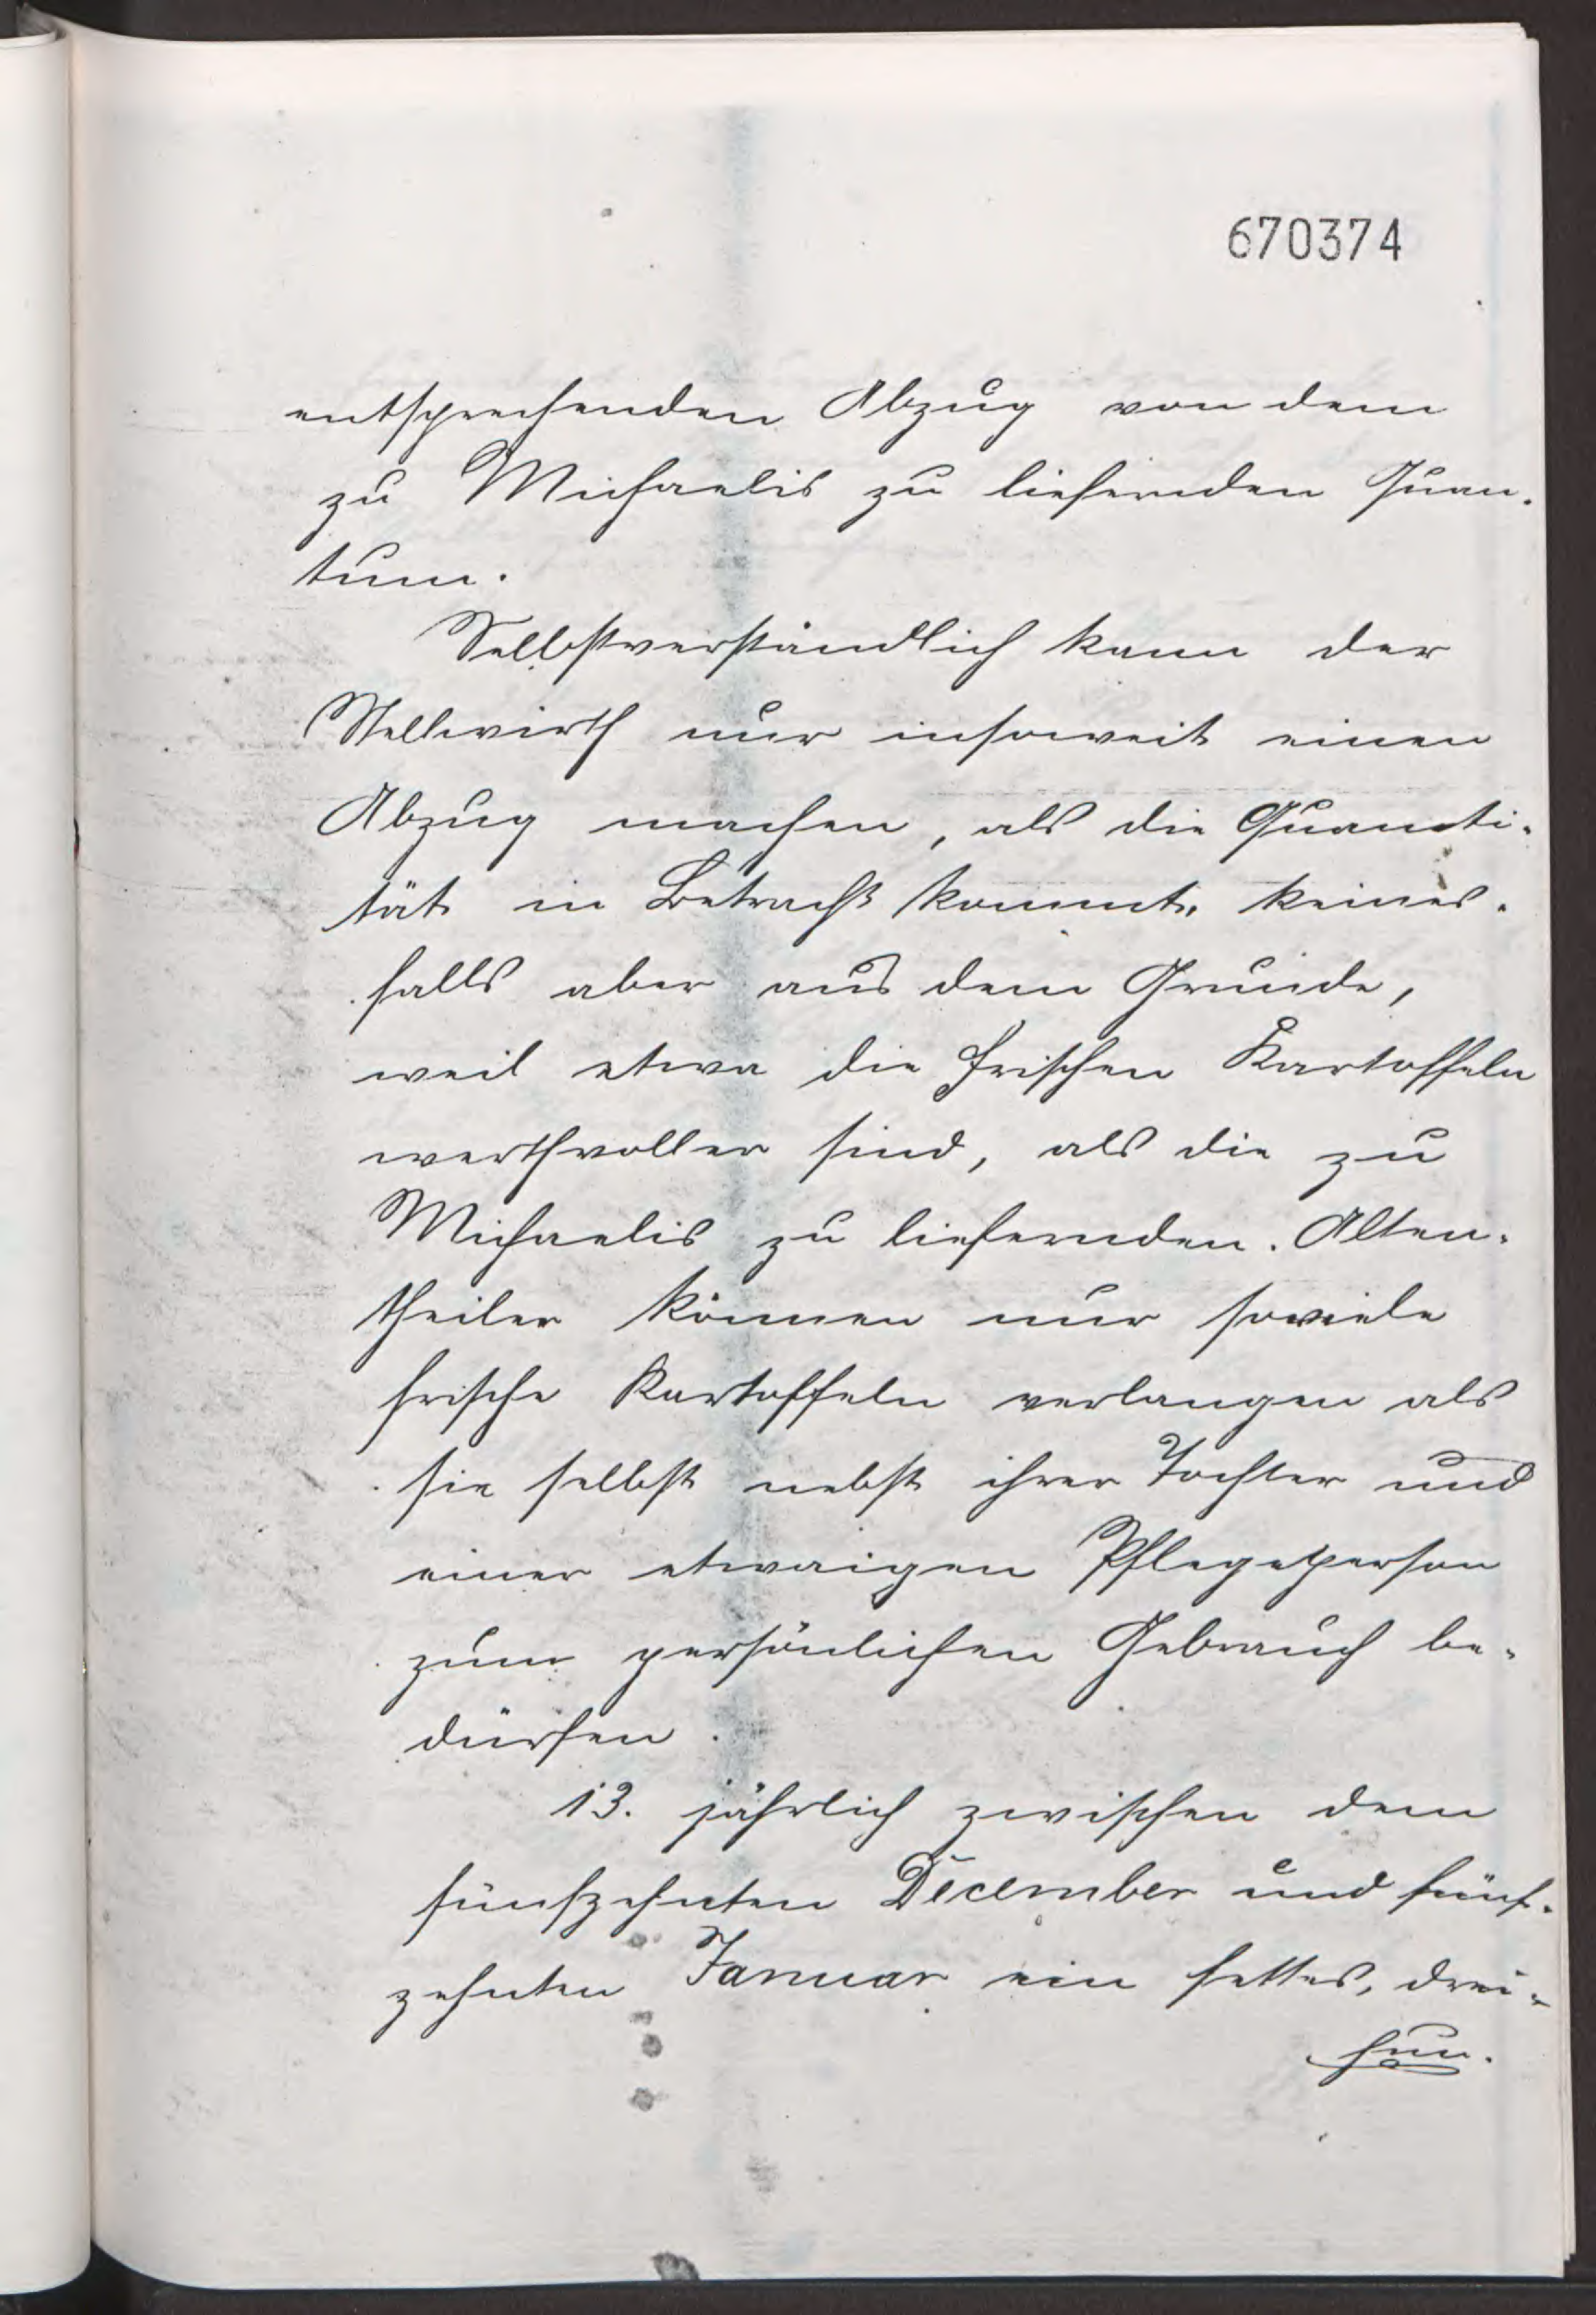 670374
entsprechenden Abzug von dem
zu Michaelis zu liefernden Quan-
tum.
Selbstverständlich kann der
Stellwirth nur insoweit einen
Abzug machen, als die Quanti-
tät in Betracht kommt, keines-
falls aber aus dem Grunde,
weil etwa die frischen Kartoffeln
werthvoller sind, als die zu
Michaelis zu liefernden. Alten-
theiler können nur soviele
frische Kartoffeln verlangen als
sie selbst nebst ihrer Tochter und
einer etwaigen Pflegeperson
zum persönlichen Gebrauch be-
dürfen.
13. jährlich zwischen dem
fünfzehnten December und fünf-
zehnten Januar ein fettes, drei-
hun-